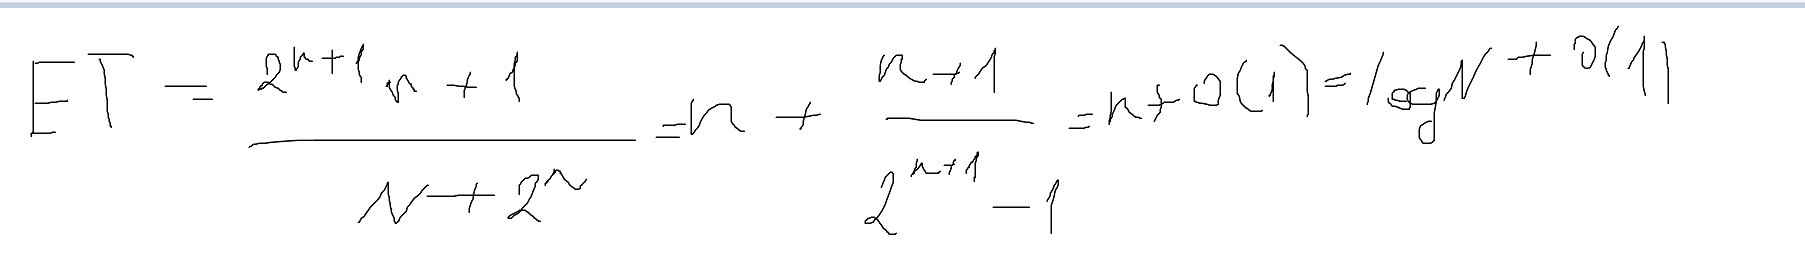 ET = \frac{2^{n+1} n + 1}{N + 2^n} = n + \frac{n+1}{2^{n+1} - 1} = n + O(1) = log N + O(1)